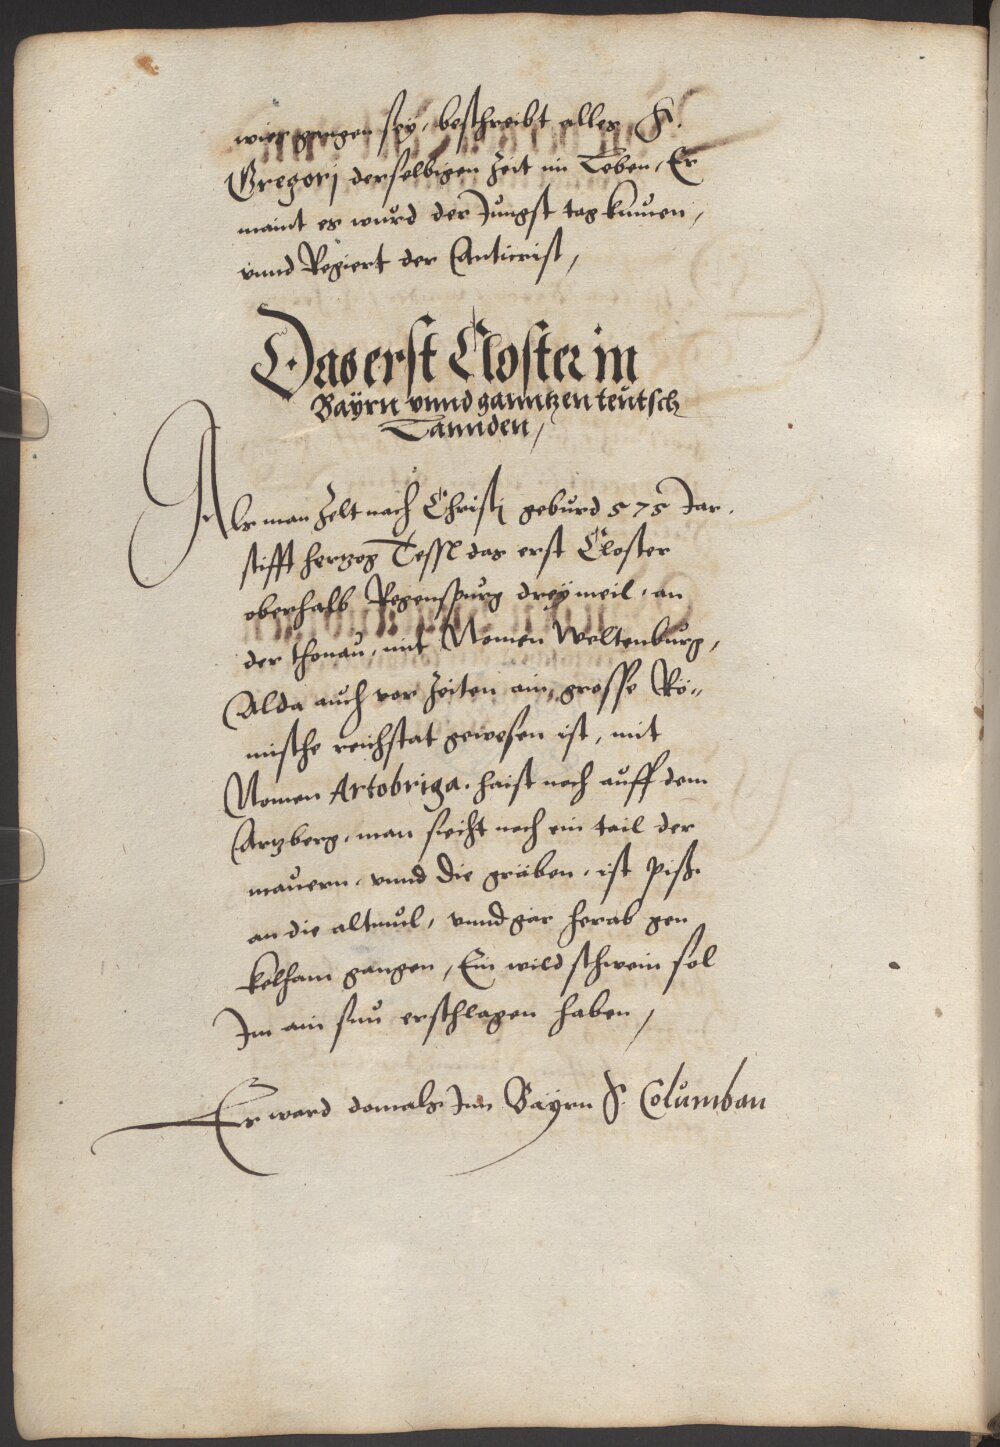 wies gangen sey, beschreibt alles S.
Gregorj derselbigen Zeit im Leben, Er
maint es wurd der Jungst tag kumen,
vnnd Regiert der Antierist,
Das erst Closter in
Bayrn vnnd ganntzen teutsch
Lannden,
Als man Zelt nach Christj geburd 575 Jar.
stifft hertzog Tessl das erst Closter
oberhalb Regenspurg drey meil, an
der thonau, mit Nomen Weltenburg,
Alda auch vor Zeiten ain grosse Rö„
mische reichstat gewesen ist, mit
Nomen Artobriga. haist noch auff dem
Artzberg, man siecht noch ein tail der
mauern, vnnd die gräben, ist piß
an die altmul, vnnd gar herab gen
kelham gangen, Ein wild schwein sol
Jm ain sun erschlagen haben,
Er ward domals Jnn Bayrn S. Columban